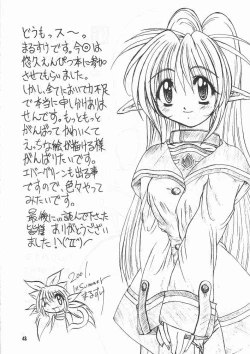 どうもっス〜。
まるすけです。今回は
悠久えんぴつ本に参加
させてもらいました。
しかし、全てにおいて力不足
で本当に申し分けありま
せんです。もっともっと
がんばってかわいくて
えっちな絵が描ける様
がんばりたいです。
エバーグリーンも出る事
ですので、色々やって
みたいです。
最後にこの読んで下さった
皆様 ありがとうござい
ました!
2001.
summer
まるすけ
48